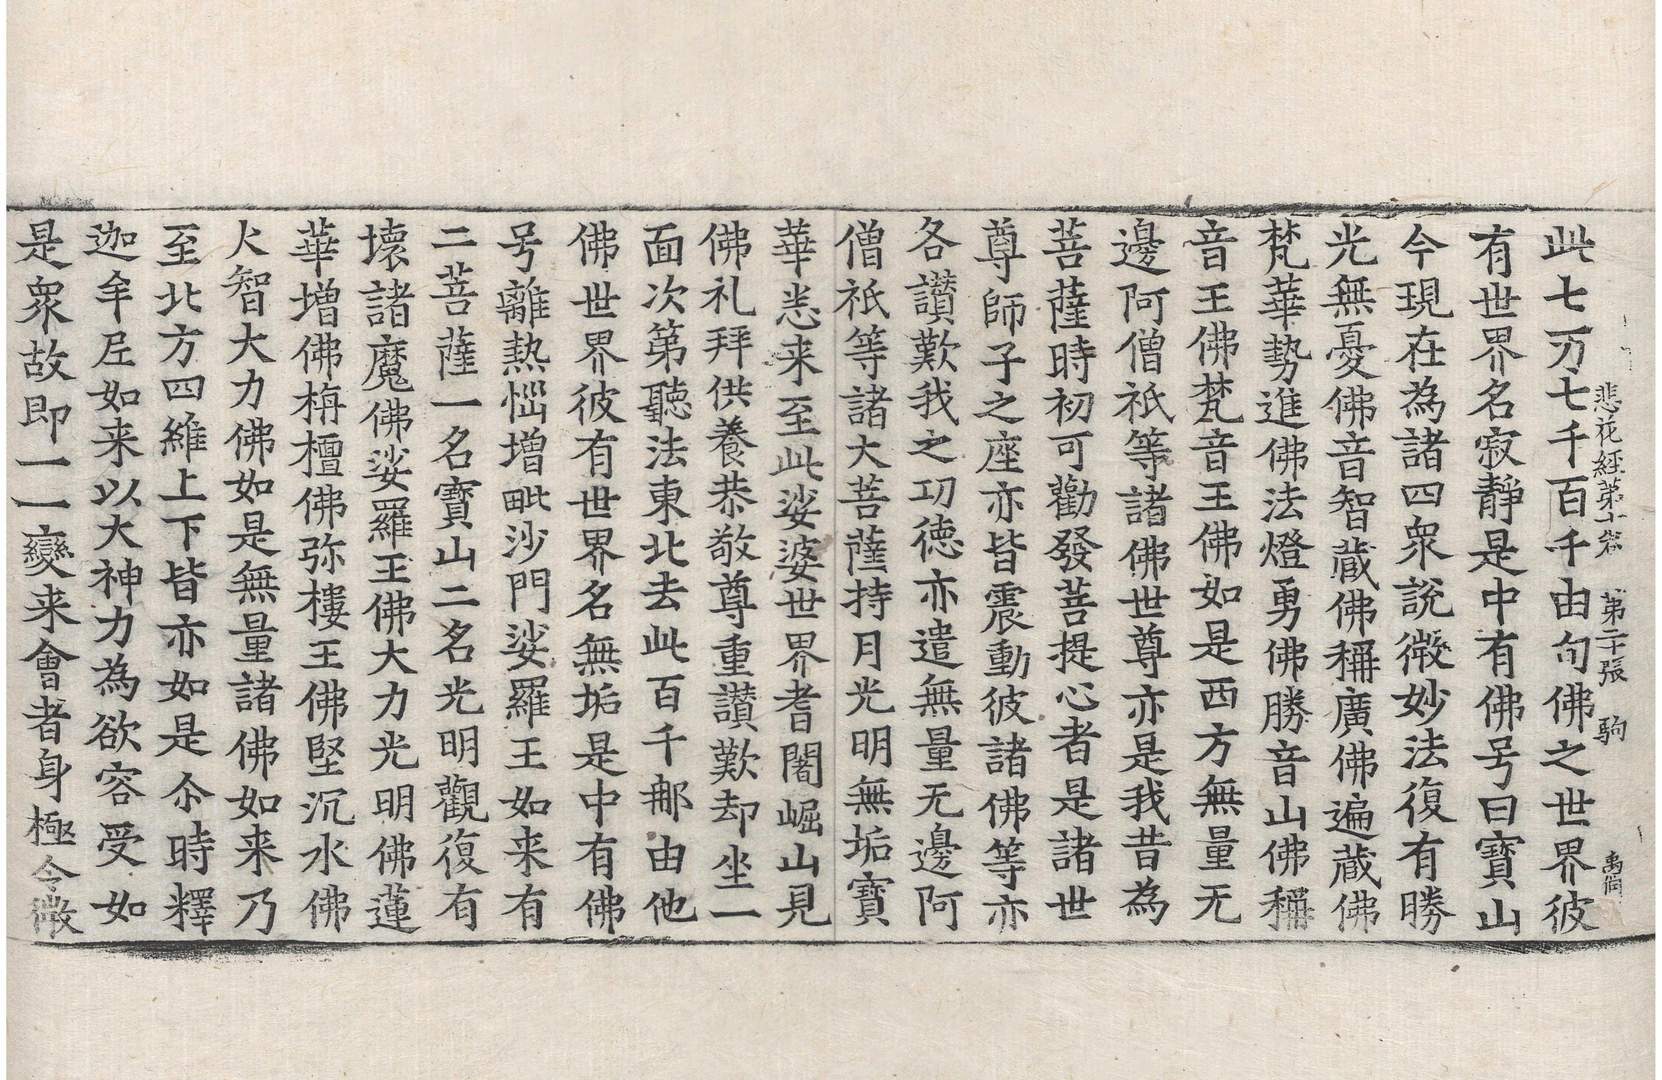 悲花經第十卷　第二十張　駒
禹侗
此七万七千百千由旬佛之世界彼
有世界名寂靜是中有佛号曰寶山
今現在為諸四衆說微妙法復有勝
光無憂佛音智藏佛稱廣佛遍藏佛
梵華勢進佛法燈勇佛勝音山佛稱
音王佛梵音王佛如是西方無量无
邊阿僧祇等諸佛世尊亦是我昔為
菩薩時初可勸發菩提心者是諸世
尊師子之座亦皆震動彼諸佛等亦
各讃歎我之㓛德亦遣無量无邊阿
僧祇等諸大菩薩持月光明無垢寶
華悉来至此娑婆世界耆闍崛山見
佛礼拜供養恭敬尊重讃歎却坐一
面次第聽法東北去此百千郍由他
佛世界彼有世界名無垢是中有佛
号離熱惱增毗沙門娑羅王如来有
二菩薩一名寶山二名光明觀復有
壞諸魔佛娑羅王佛大力光明佛蓮
華增佛栴檀佛弥樓王佛堅沉水佛
火智大力佛如是無量諸佛如来乃
至北方四維上下皆亦如是尒時釋
迦牟尼如来以大神力為欲容受如
是衆故即一一變来會者身極令微